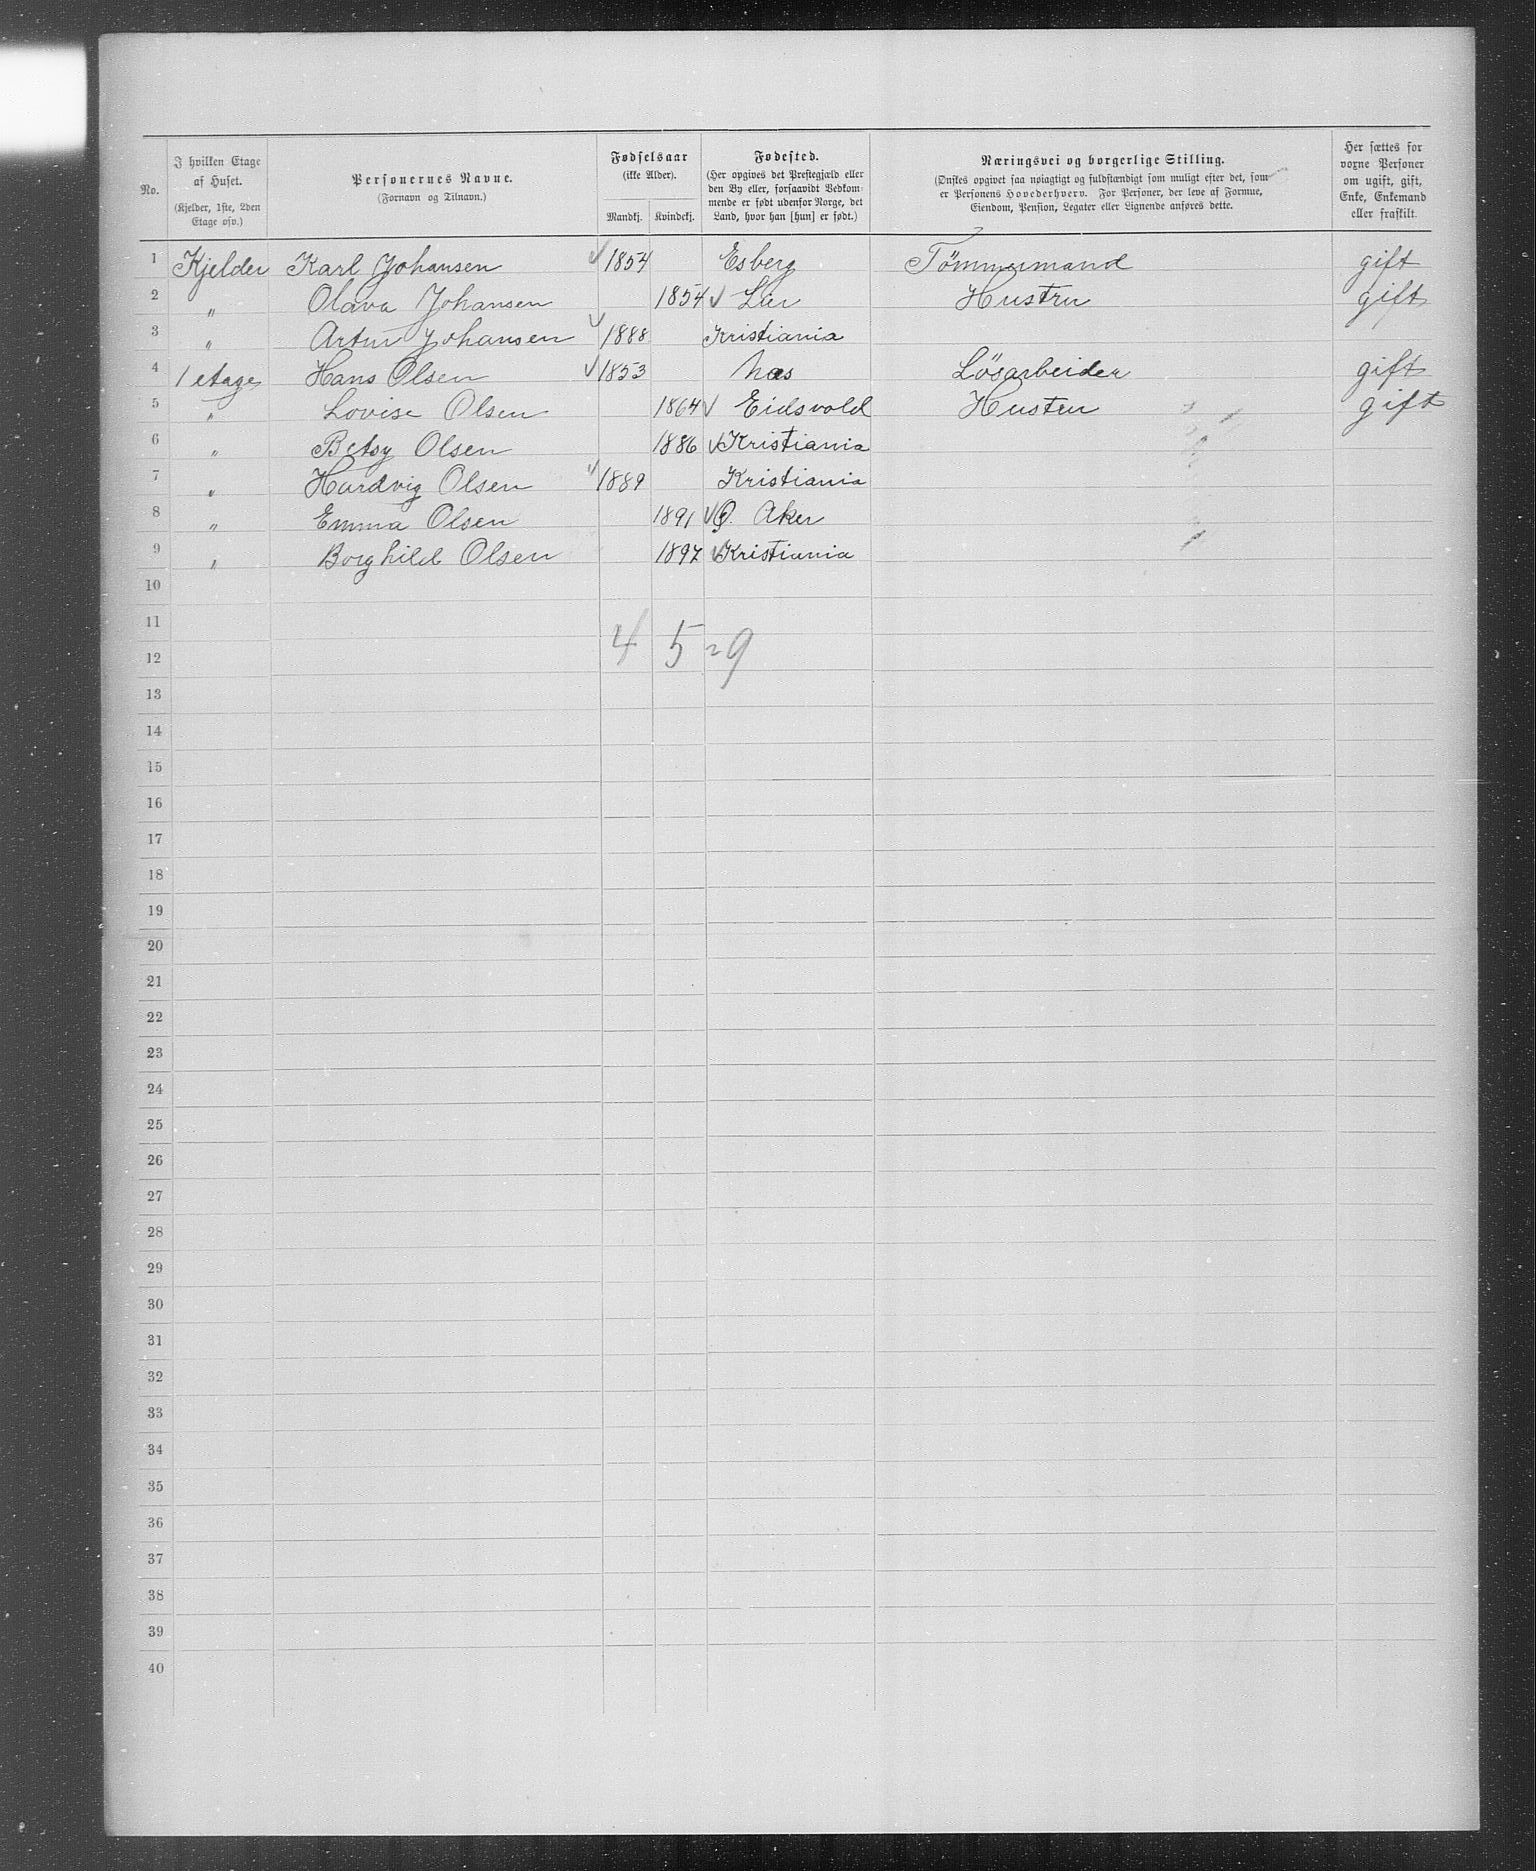 No.
I hvilken Etage af Huset. (Kjelder, 1ste, 2den Etage osv.)
Personernes Navne. (Fornavn og Tilnavn.)
Fødselsaar (ikke Alder). Mandkj. Kvindekj.
Fødested. (Her opgives det Præstegjæld eller den By eller, forsaavidt Vedkommende er født udenfor Norge, det Land, hvor han [hun] er født.)
Næringsvei og borgerlige Stilling. (Ønskes opgivet saa nøiagtigt og fuldstændigt som muligt efter det, som er Personens Hovederhverv. For Personer, der leve af Formue, Eiendom, Pension, Legater eller Lignende anføres dette.
Her sættes for voxne Personer om ugift, gift, Enke, Enkemand eller fraskilt.
1 Kjelder Karl Johansen √ 1854 Esberg Tömmermand gift
2 " Olava Johansen 1854 √ Lier Hustru gift
3 " Artur Johansen √ 1888 Kristiania
4 1 etage Hans Olsen √ 1853 Næs Lösarbeider gift
5 " Lovise Olsen 1864 √ Eidsvold Hustru gift
6 " Betsy Olsen 1886 √ Kristiania
7 " Hardvig Olsen √ 1889 Kristiania
8 " Emma Olsen 1891 √ Ø. Aker
9 " Borghild Olsen 1897 √ Kristiania
10
11
4 5 = 9
12
13
14
15
16
17
18
19
20
21
22
23
24
25
26
27
28
29
30
31
32
33
34
35
36
37
38
39
40